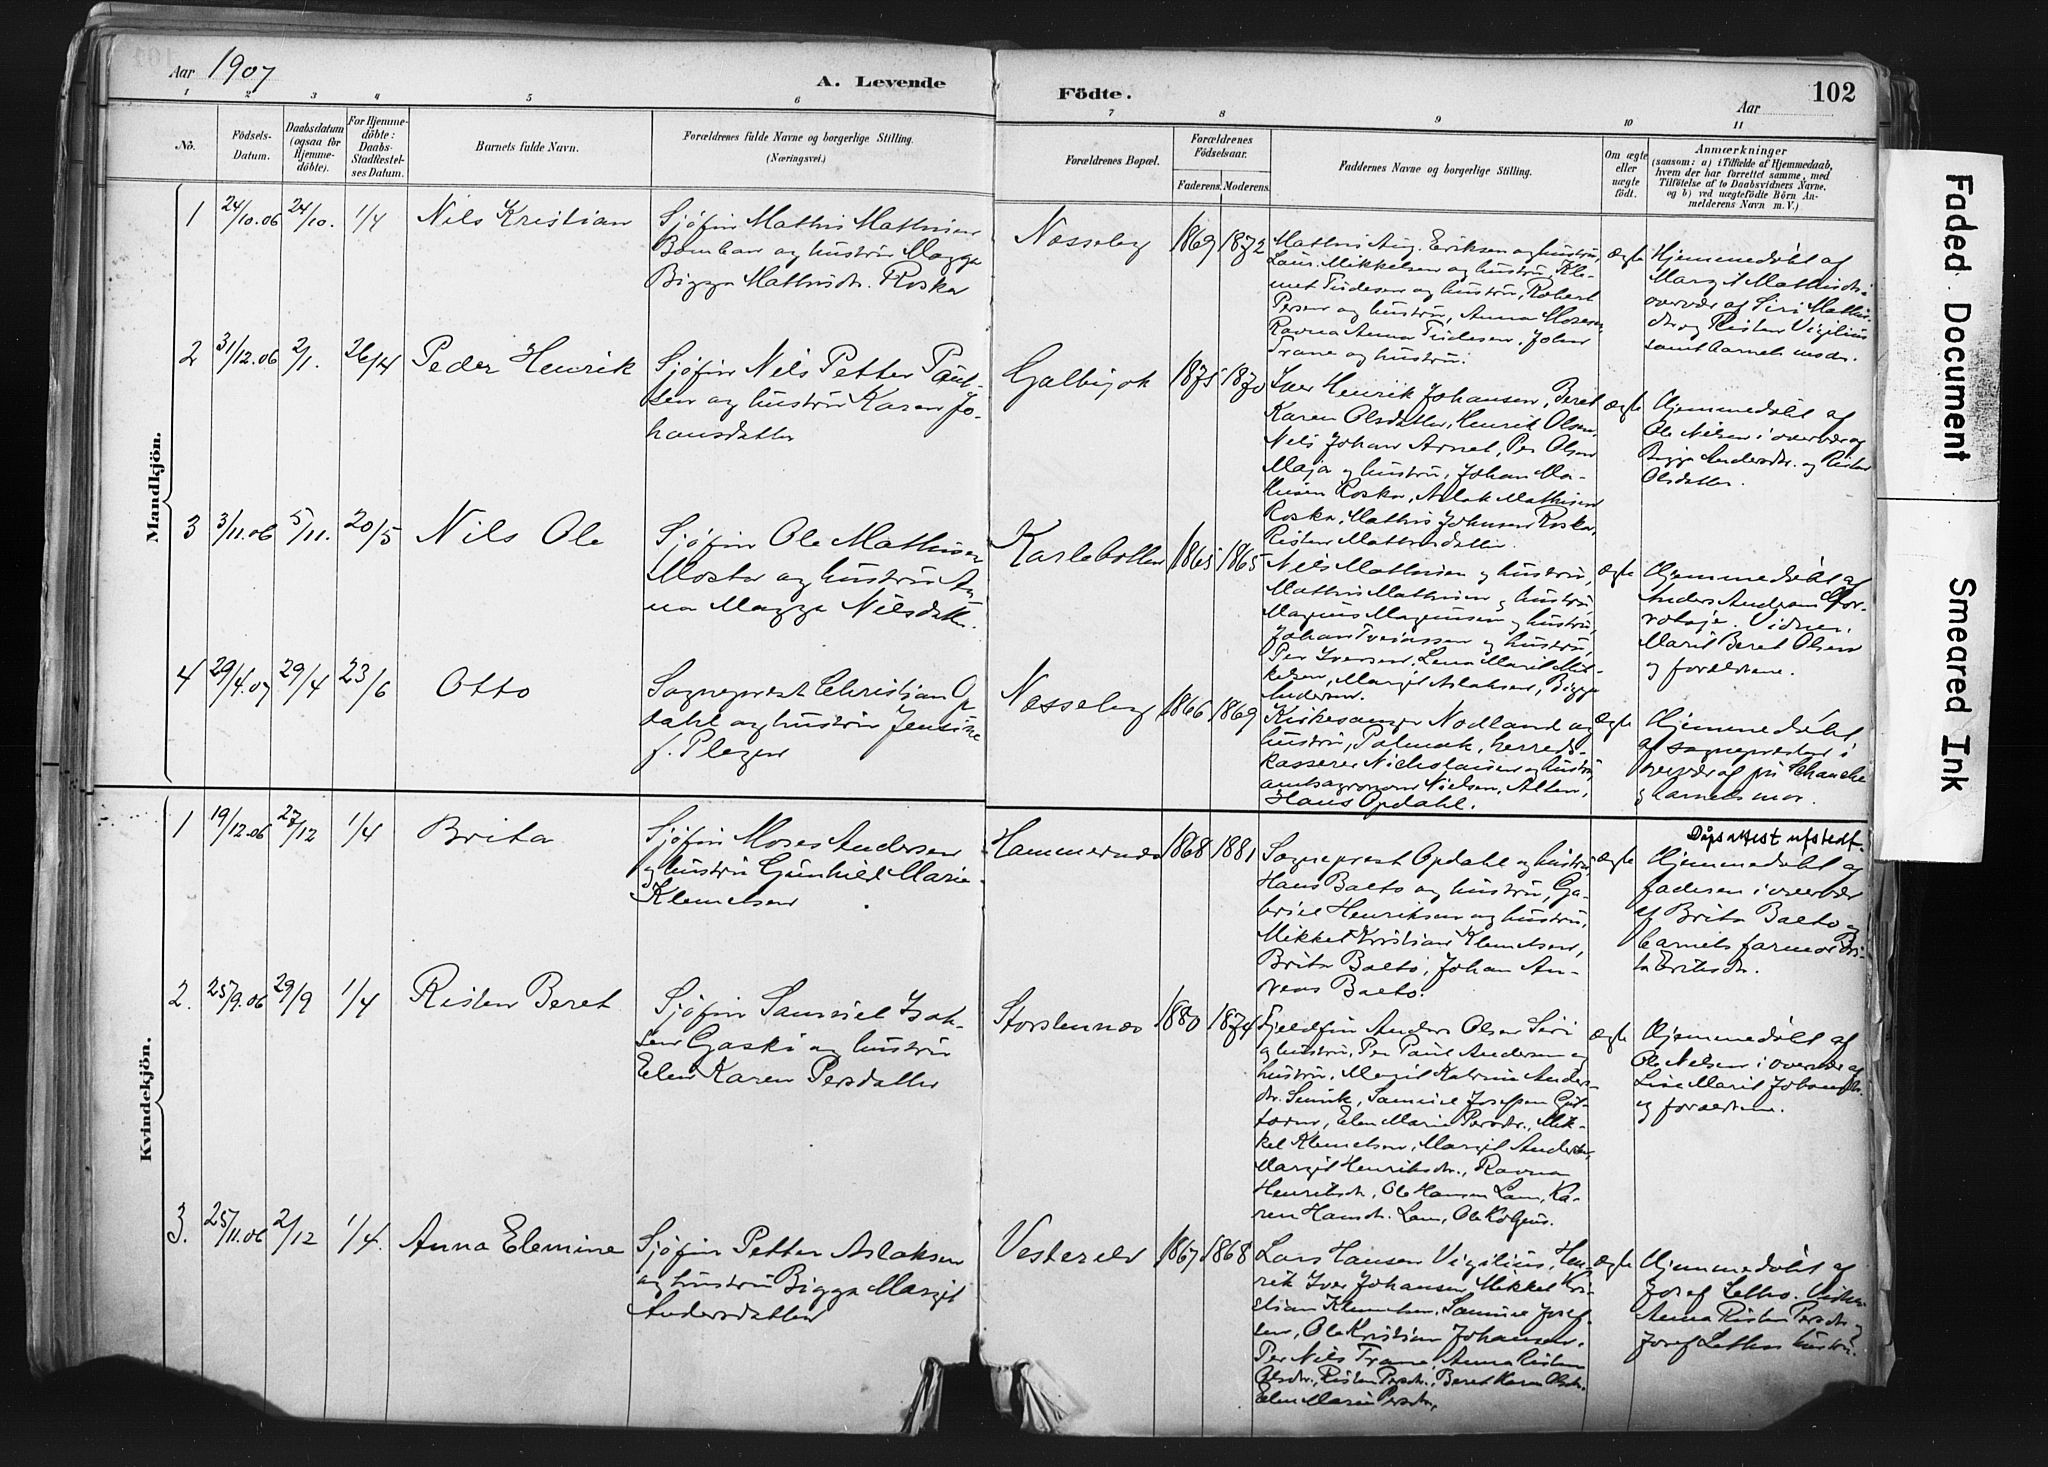 Aar 1907
A. Levende
Födte.
Aar
102
1 2 3 4 5 6 7 8 9 10 11
No.
Födsels-
Datum.
Daabsdatum
(ogsaa for
Hjemme-
döbte).
For Hjemme-
döbte:
Daabs-
Stadfæstel-
ses Datum.
Barnets fulde Navn.
Forældrenes fulde Navne og borgerlige Stilling.
(Næringsvei.)
Forældrenes Bopæl.
Forældrenes
Födselsaar.
Faderens. Moderens.
Faddernes Navne og borgerlige Stilling.
Om ægte
eller
uægte
födt.
Anmærkninger
(saasom: a) i Tilfælde af Hjemmedaab,
hvem der har forrettet samme, med
Tilföielse af to Daabsvidners Navne,
og b) ved uægtefödte Börn An-
melderens Navn m. V.)
Mandkjön.
1 24/10.06 24/10. 1/4 Nils Kristian
Sjøfin Mathis Mathisen
Bomban og hustru Magga
Bigga Mathisdtr. Roska
Nesseby 1869 1872
Mathis Aug. Eriksen og hustru,
Laur. Mikkelsen og hustru, Kle-
met Tudesen og hustru, Robert
Persen og hustru, Anna Mosesen,
Ravna Anna Tudesen, John
Trane og hustru.
ægte
Hjemmedøbt af
Margit Mathisdtr i
overvær af Siri Mathis-
dtr og Risten Vigilius
samt barnets moder.
2 31/12.06 2/1. 26/4 Peder Henrik
Sjøfin Nils Petter Paul-
sen og hustru Karen Jo-
hansdatter
Galbijok 1875 1870
Iver Henrik Johansen, Beret
Karen Olsdatter, Henrik Olsen,
Nils Johan Arnet, Per Olsen
Maja og hustru, Johan Ma-
thisen Roska, Aslak Mathisen
Roska, Mathis Johnsen Roska,
Risten Mathisdatter.
ægte
Hjemmedøbt af
Ole Nilsen i overvær af
Bigga Andersdtr. og Risten
Olsdatter.
3 3/11.06 5/11. 20/5 Nils Ole
Sjøfin Ole Mathisen
Moster og hustru An-
na Magga Nilsdatter.
Karlebotten 1865 1865
Nils Mathisen og hustru,
Mathis Mathisen og hustru,
Magnus Magnussen og hustru,
Johan Tveinassen og hustru,
Per Iversen, Lena Marit Mik-
kelsen, Margit Aslaksen, Bigga
Andersen.
ægte
Hjemmedøbt af
Anders Andersen
Vidner:
Marit Beret Olsen
og forældrene.
4 29/4.07 29/4 23/6 Otto
Sogneprest Christian Op-
dahl og hustru Jensine
f. Plezen
Nesseby 1866 1869
Kirkesanger Nodland og
hustru, Polmak, herreds-
kasserer Nicholaisen og hustru,
amtsagronom Nielsen, Alten,
Hans Opdahl.
ægte
Hjemmedøbt
af sognepresten i
overvær af fru Schanche
og barnets mor.
Kvindekjön.
1 19/12.06 27/12 1/4 Brita
Sjøfin Moses Andersen
og hustru Gunhild Marie
Klemetsen
Hammernes 1868 1881
Sogneprest Opdahl og hustru,
Hans Balto og hustru, Ga-
briel Henriksen og hustru,
Mikkel Kristian Klemetsen,
Brita Balto, Johan An-
dreas Balto.
ægte
Dåpsattest utstedt.
Hjemmedøbt af
faderen i overvær
af Brita Balto og
barnets farmor Bri-
ta Eriksdr.
2. 25/9.06 29/9 1/4 Risten Beret
Sjøfin Samuel Isak-
sen Gaski og hustru
Elen Karen Persdatter
Storslennes 1880 1874
Fjeldfin Anders Olsen Siri
og hustru, Per Paul Andersen og
hustru, Margit Katrine Anders-
dtr. Smuk, Samuel Josefsen Gut-
torm, Elen Marie Persdtr., Mik-
kel Klemetsen, Margit Andersen,
Margit Henriksdtr., Ravna
Henriksdtr, Ole Hansen Lam, Ka-
ren Hansdtr. Lam, Ole
ægte
Hjemmedøbt af
Ole Nilsen i overvær af
Lise Marit Johansdtr.
og forældrene.
3. 25/11.06 2/12 1/4. Anna Elemine
Sjøfin Petter Aslaksen
og hustru Bigga Margit
Andersdatter
Vesterelv 1867 1868
Lars Hansen Vigilius, Hen-
rik Iver Johansen, Mikkel Kri-
stian Klemetsen, Samuel Josef-
sen, Ole Kristian Johansen,
Per Nils Trane, Anna Risten
Olsdtr., Risten Persdtr., Beret Karen Olsdtr.
Elen Marie Persdtr,
ægte
Hjemmedøbt af
Josef Letho. Vidner
Anna Risten Persdtr og
Josef Lethos hustru.
Faded Document
Smeared Ink